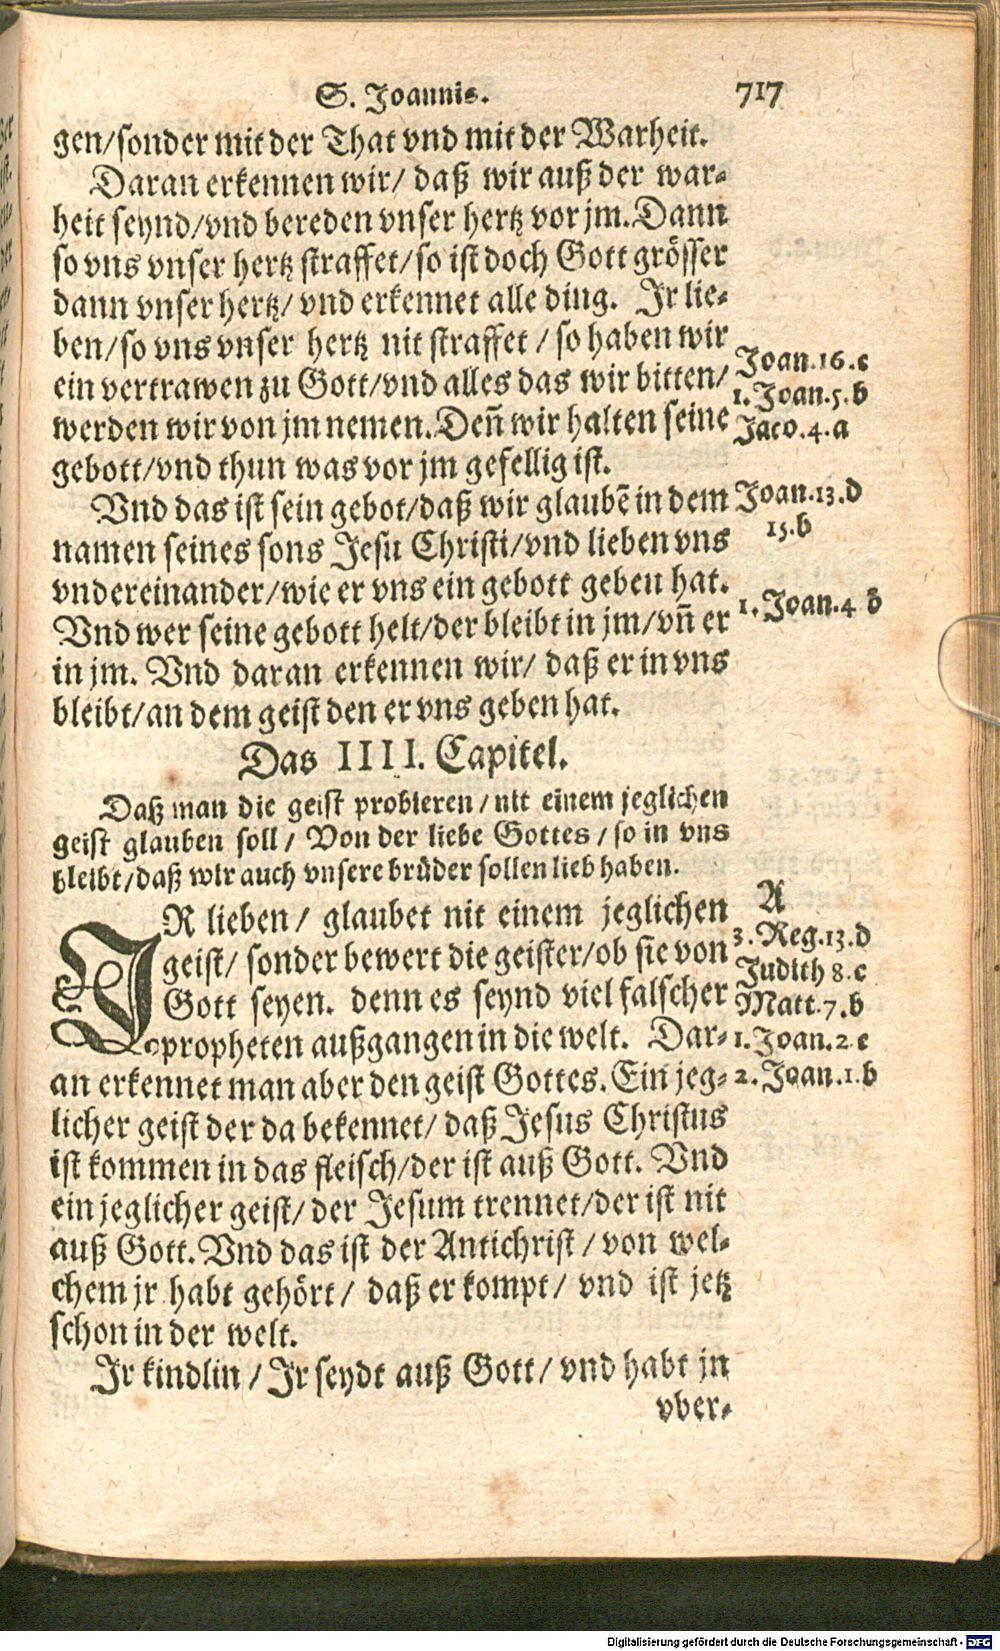 S. Joannis. 717
gen/sonder mit der That vnd mit der Warheit.
Daran erkennen wir/ daß wir auß der war-
heit seynd/vnd bereden vnser hertz vor jm. Dann
so vns vnser hertz straffet/so ist doch Gott grösser
dann vnser hertz/ vnd erkennet alle ding. Jr lie-
ben/so vns vnser hertz nit straffet / so haben wir
ein vertrawen zu Gott/vnd alles das wir bitten/
werden wir von jm nemen. Deñ wir halten seine
gebott/vnd thun was vor jm gefellig ist.
Joan.16.c
1. Joan.5.b
Jaco.4.a
Vnd das ist sein gebot/daß wir glaubẽ in dem
namen seines sons Jesu Christi/vnd lieben vns
vndereinander/wie er vns ein gebott geben hat.
Vnd wer seine gebott helt/der bleibt in jm/vñ er
in jm. Vnd daran erkennen wir/ daß er in vns
bleibt/an dem geist den er vns geben hat.
Joan.13.d
15.b
1. Joan.4 d
Das IIII. Capitel.
Daß man die geist probieren/nit einem jeglichen
geist glauben soll / Von der liebe Gottes / so in vns
bleibt/daß wir auch vnsere brüder sollen lieb haben.
JR lieben/ glaubet nit einem jeglichen
geist/ sonder bewert die geister/ob sie von
Gott seyen. denn es seynd viel falscher
propheten außgangen in die welt. Dar-
an erkennet man aber den geist Gottes. Ein jeg-
licher geist der da bekennet/ daß Jesus Christus
ist kommen in das fleisch/der ist auß Gott. Vnd
ein jeglicher geist/ der Jesum trennet/der ist nit
auß Gott. Vnd das ist der Antichrist / von wel-
chem jr habt gehört/ daß er kompt/ vnd ist jetz
schon in der welt.
A
3. Reg.13.d
Judith 8.c
Matt.7.b
1. Joan.2 c
2. Joan.1.b
Jr kindlin / Jr seydt auß Gott/ vnd habt jn
vber-
Digitalisierung gefördert durch die Deutsche Forschungsgemeinschaft - DFG